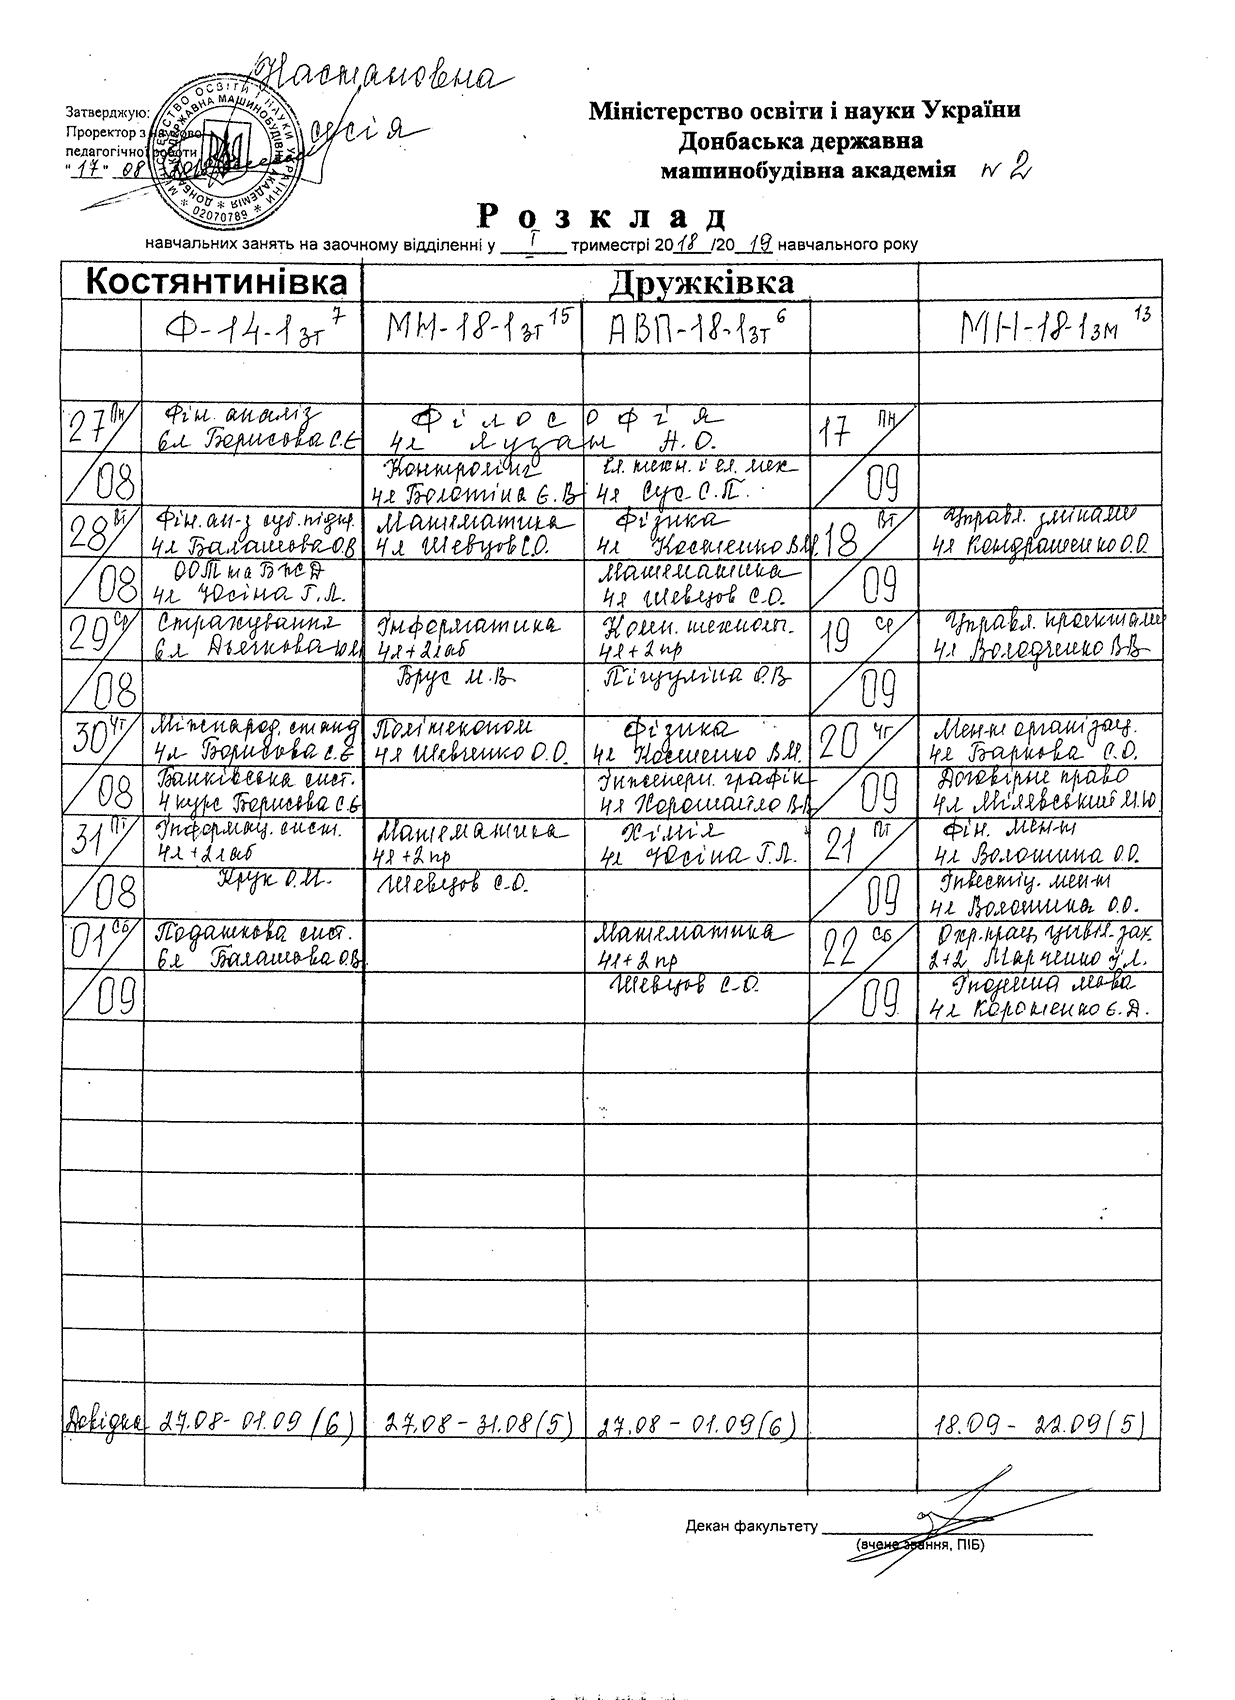 Настановна
сесія
Затверджую:
Проректор з
педагогічної роботи
"17" 08
МІНІСТЕРСТВО ОСВІТИ І НАУКИ УКРАЇНИ
ДОНБАСЬКА ДЕРЖАВНА МАШИНОБУДІВНА АКАДЕМІЯ
02070789
Міністерство освіти і науки України
Донбаська державна
машинобудівна академія № 2
Розклад
навчальних занять на заочному відділенні у І триместрі 2018/2019 навчального року
Костянтинівка Дружківка
Ф-14-1зт 7 МН-18-1зт 15 АВП-18-1зт 6 МН-18-1зм 13
27 Пн Фін. аналіз Філософія 17 Пн
6л Борисова С.Є 4л Лузан Н.О.
/08 Контролінг Ел. техн. і ел. мех /09
4л Болотіна Є.В 4л Сус С.П.
28 Вт Фін. ан-з суб. підпр. Математика Фізика 18 Вт Управл. змінами
4л Балашова О.В 4л Шевцов С.О. 4л Костенко В.М. 4л Кондрашенко О.О.
/08 ООП та БЖД Математика /09
4л Юсіна Г.Л. 4л Шевцов С.О.
29 Ср Страхування Інформатика Комп. технол. 19 Ср Управл. проектами
6л Дьячкова Ю.М 4л+2лаб 4л+2пр 4л Володченко В.В
/08 Брус М.В Пігуліна О.В /09
30 Чт Міжнарод. станд Політекономі Фізика 20 Чт Мен-т організац.
4л Борисова С.Є 4л Шевченко О.О. 4л Костенко В.М. 4л Баркова С.О.
/08 Банківська сист. Інженерн. графік /09 Договірне право
4 курс Борисова С.Є 4л Хорошайло В.В 4л Мілявський М.Ю
31 Пт Інформац. сист. Математика Хімія 21 Пт Фін. мен-т
4л+2лаб 4л+2пр 4л Юсіна Г.Л. 4л Волошина О.О.
/08 Крук О.М. Шевцов С.О. /09 Інвестиц. мен-т
4л Волошина О.О.
01 Сб Податкова сист. Математика 22 Сб Охр. прац, цивіл. зах.
6л Балашова О.В 4л+2пр 2+2 Марченко І.Л.
/09 Шевцов С.О. /09 Іноземна мова
4л Корошенко Є.Д.
Довідка 27.08-01.09 (6) 27.08-31.08 (5) 27.08-01.09 (6) 18.09-22.09 (5)
Декан факультету
(вчене звання, ПІБ)